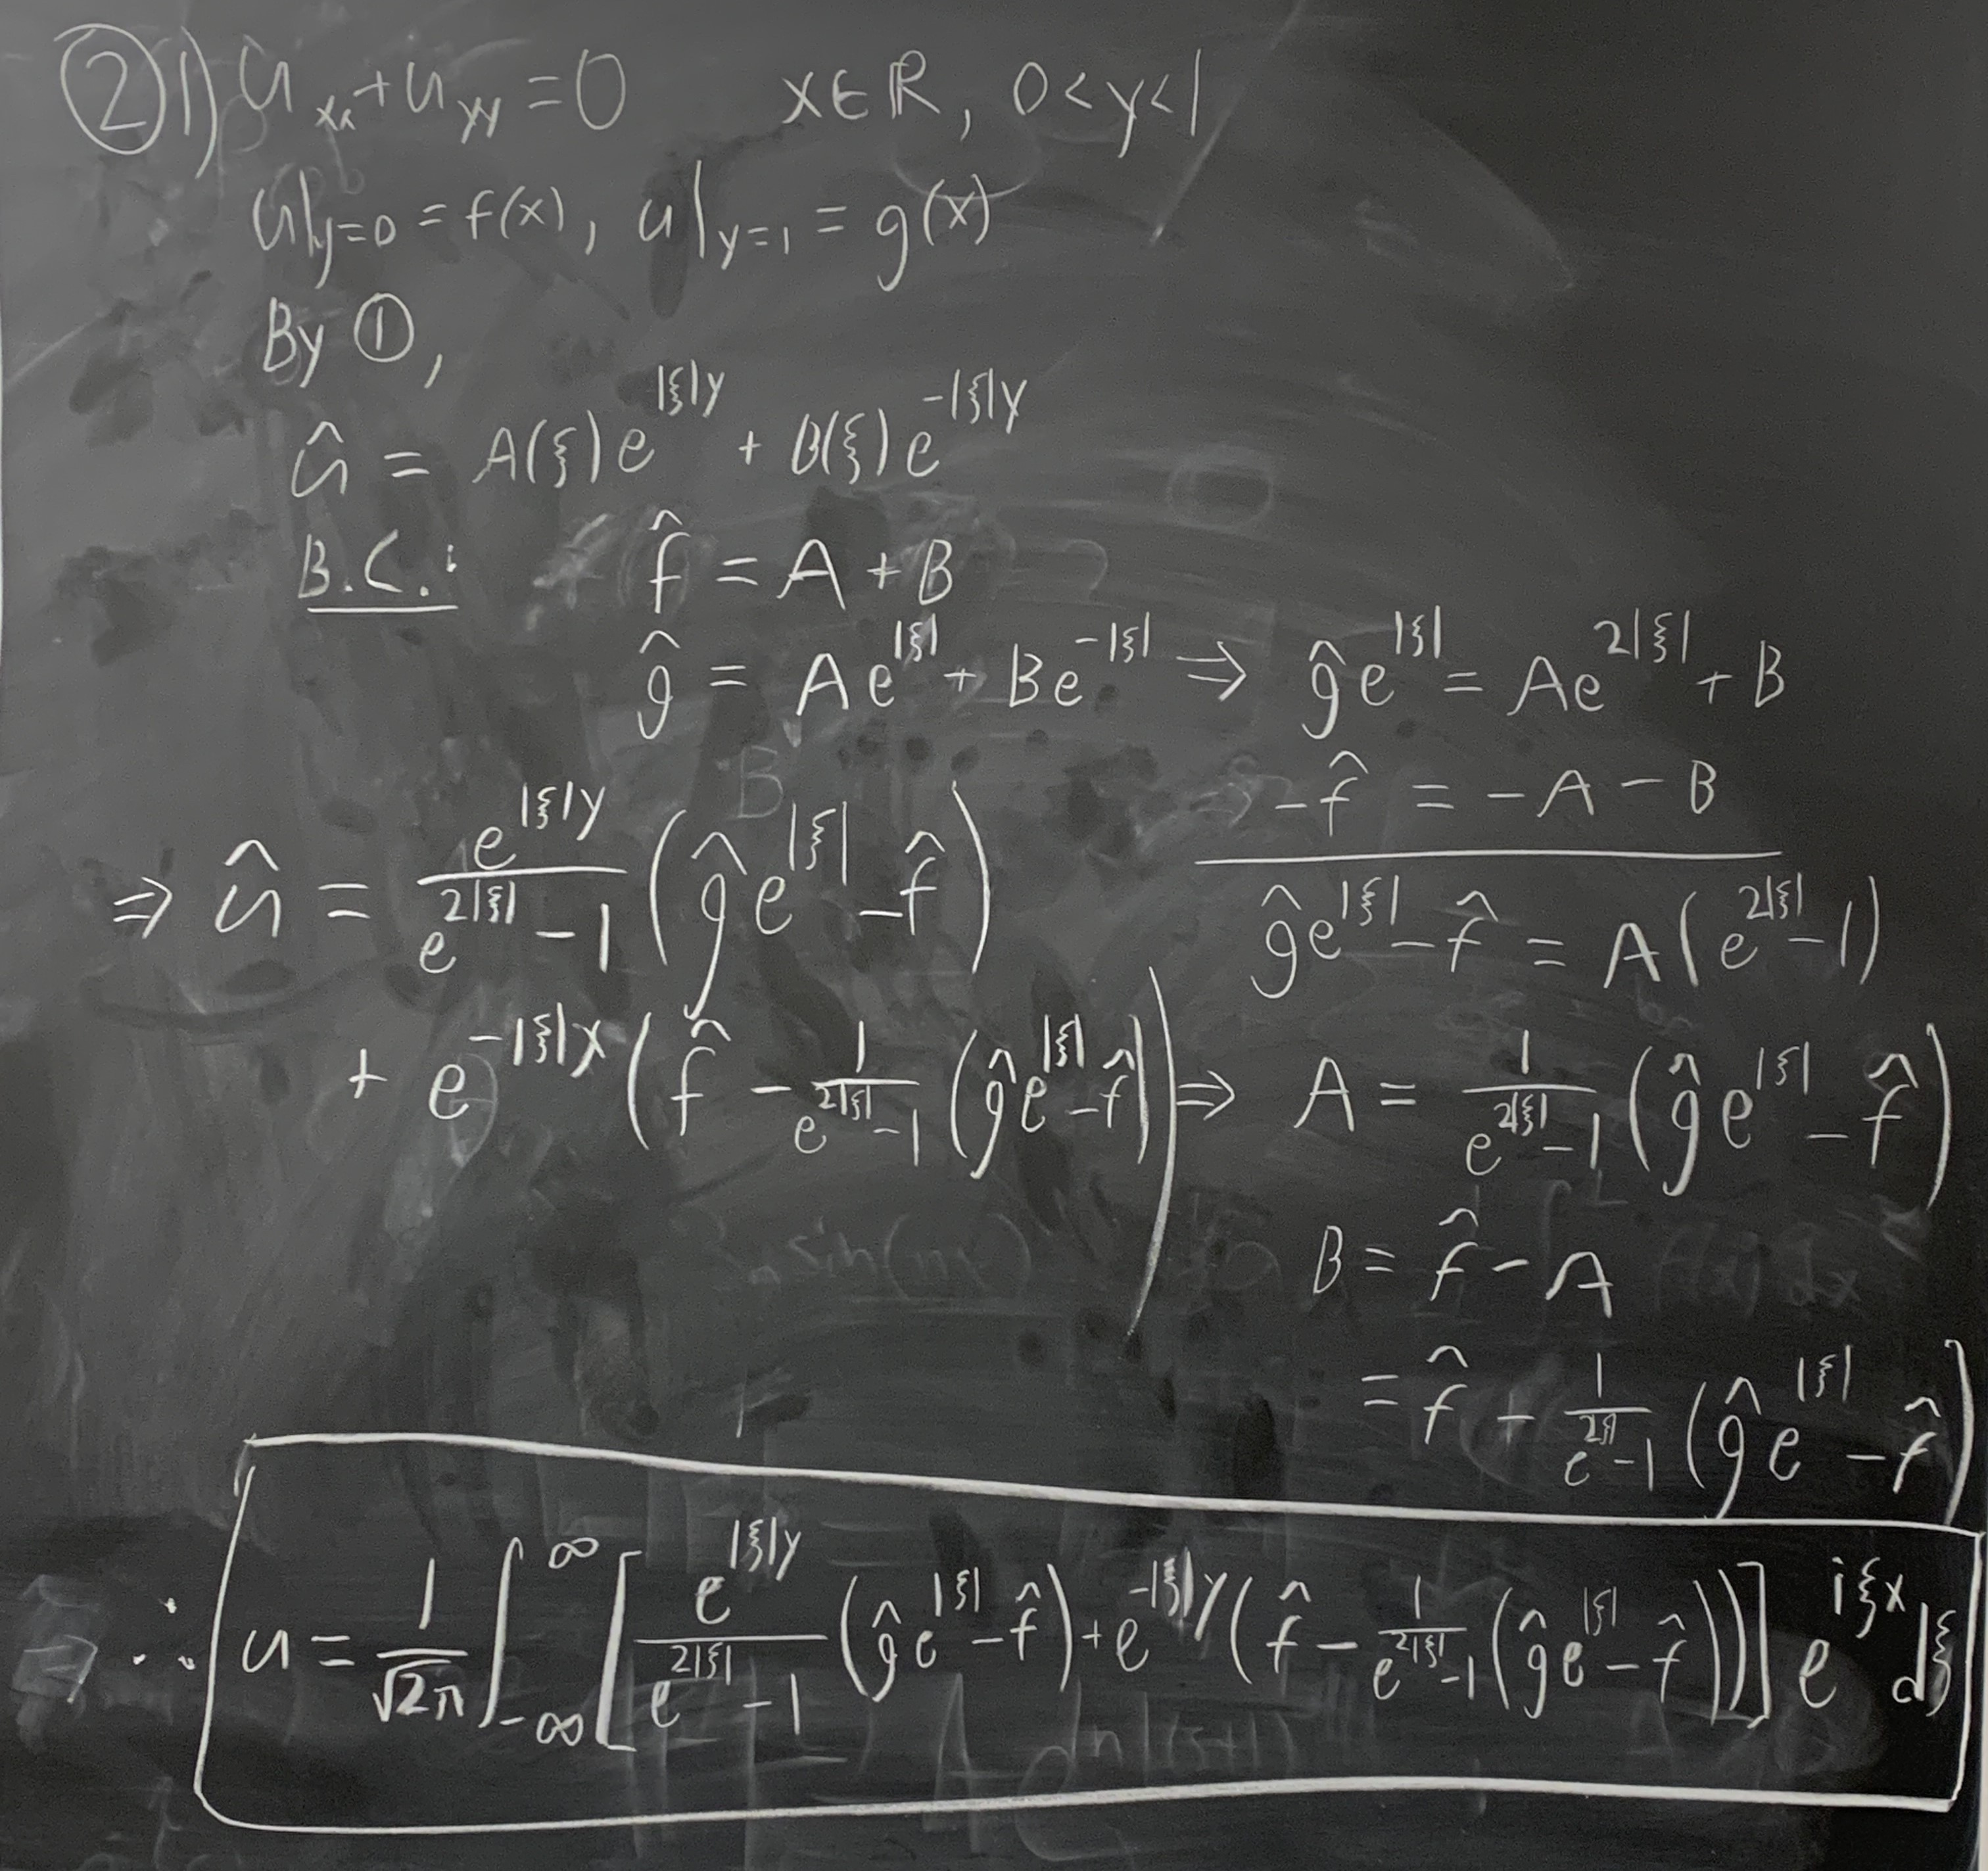 ② 1) u_xx + u_yy = 0    x∈ℝ, 0<y<1
u|_{y=0} = f(x), u|_{y=1} = g(x)
By ①,
û = A(ξ)e^{|ξ|y} + B(ξ)e^{-|ξ|y}
B.C.:    f̂ = A + B
ĝ = Ae^{|ξ|} + Be^{-|ξ|} ⇒ ĝe^{|ξ|} = Ae^{2|ξ|} + B
-f̂ = -A - B
ĝe^{|ξ|} - f̂ = A(e^{2|ξ|} - 1)
⇒ A = 1/(e^{2|ξ|} - 1) (ĝe^{|ξ|} - f̂)
B = f̂ - A
= f̂ - 1/(e^{2|ξ|} - 1) (ĝe^{|ξ|} - f̂)
⇒ û = e^{|ξ|y}/(e^{2|ξ|} - 1) (ĝe^{|ξ|} - f̂)
+ e^{-|ξ|x} (f̂ - 1/(e^{2|ξ|} - 1) (ĝe^{|ξ|} - f̂))
∴ u = 1/√2π ∫_{-∞}^{∞} [e^{|ξ|y}/(e^{2|ξ|} - 1) (ĝe^{|ξ|} - f̂) + e^{-|ξ|y}(f̂ - 1/(e^{2|ξ|} - 1) (ĝe^{|ξ|} - f̂))] e^{iξx} dξ